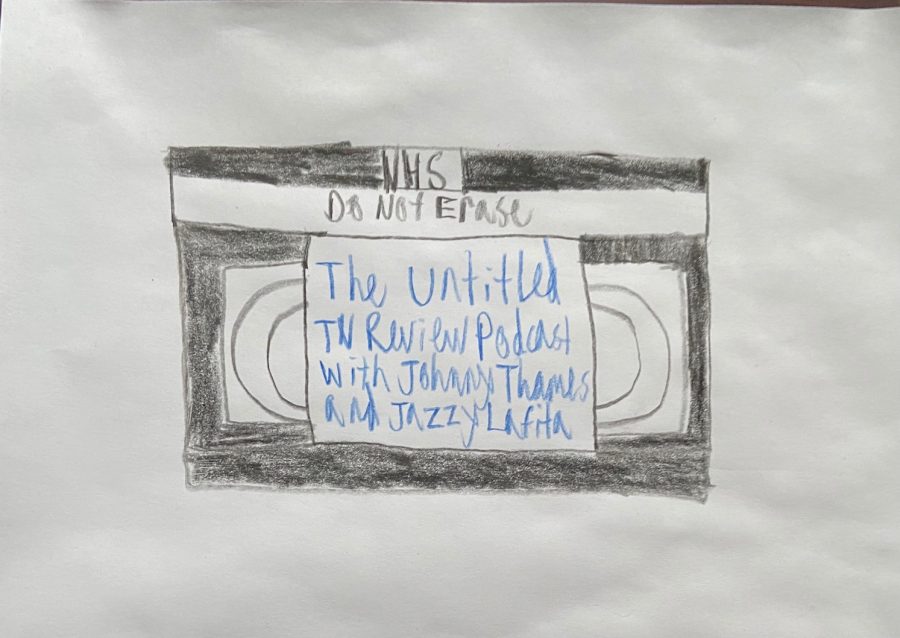 NHS
Do Not Erase
The Untitled
TV Review Podcast
with Johnny Thames
and Jazzy Lafita